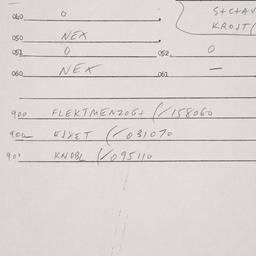 040 0
S+C+AV
KROJT(
050 NEX
051 0 052 0
060 NEX 061 —
900 FLEKTMENZOGT (/158060
900 EJVET (/031070
901 KNOBL (/095110